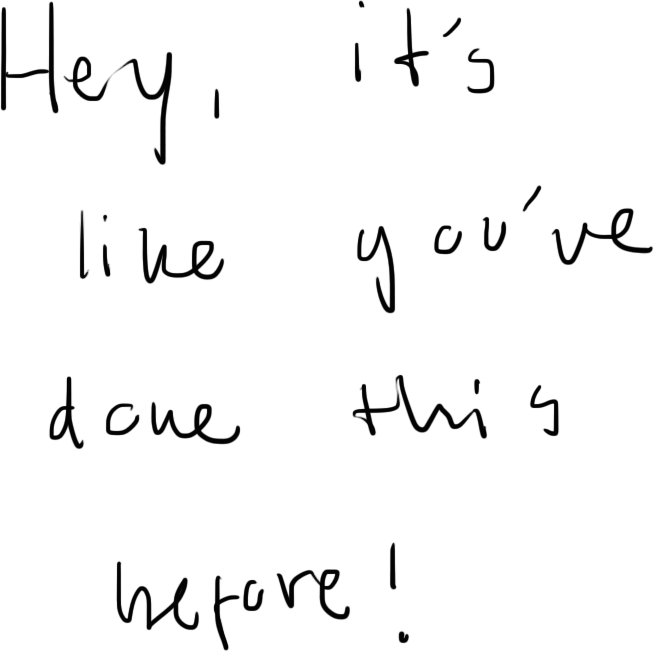 Hey, it's
like you've
done this
before!